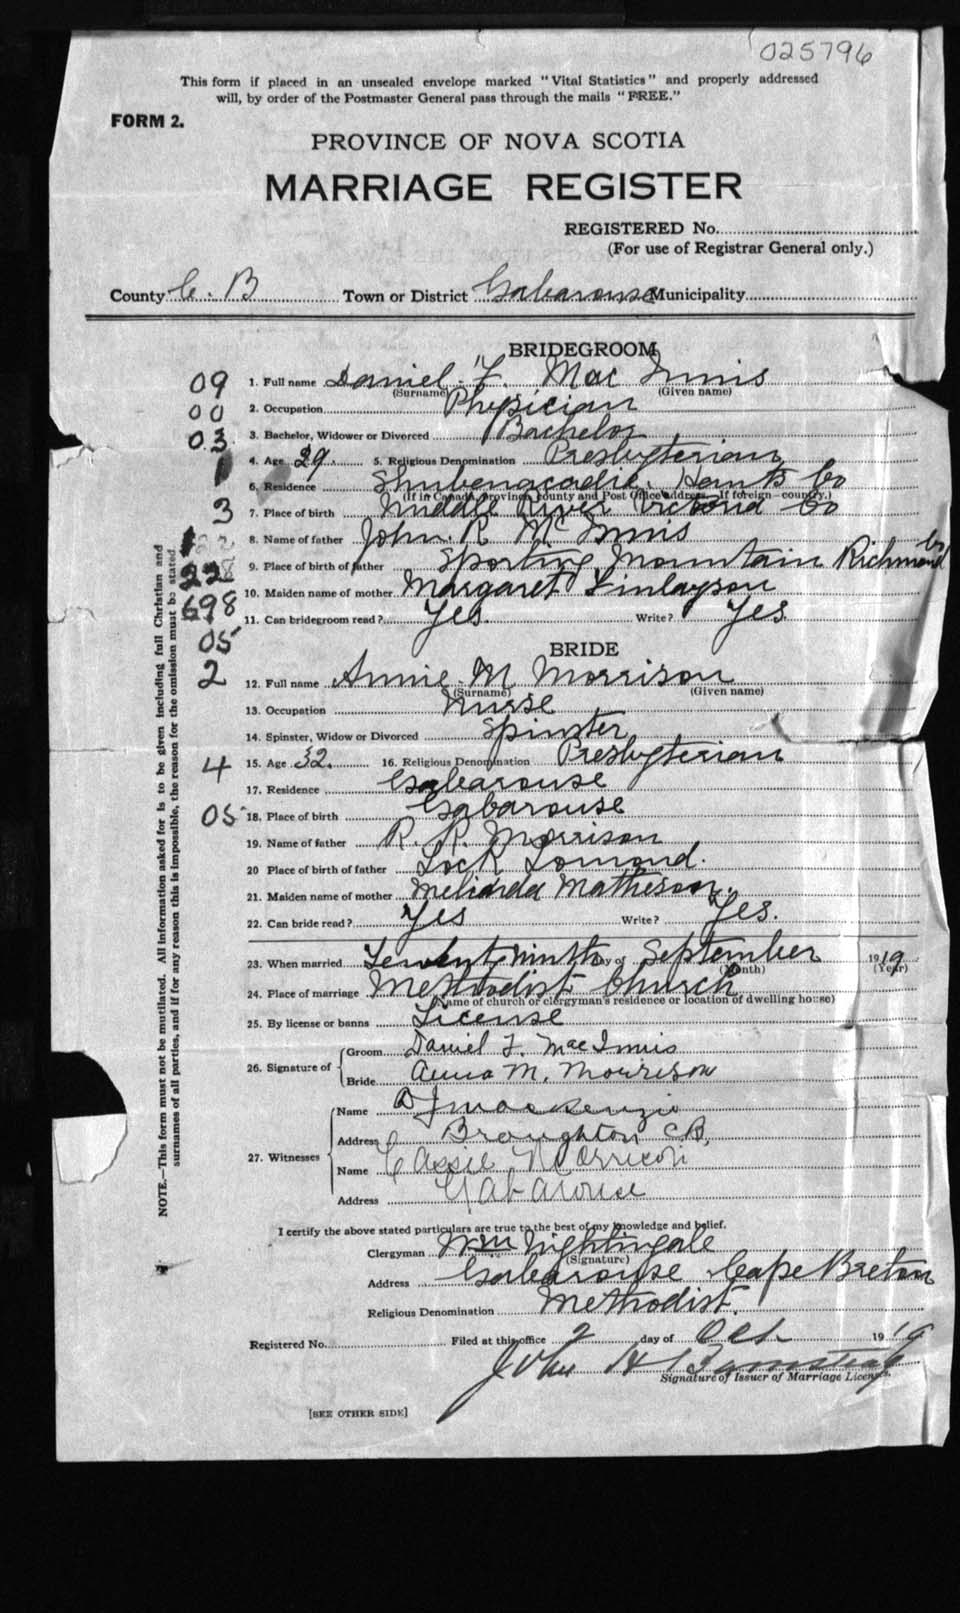 025796
This form if placed in an unsealed envelope marked "Vital Statistics" and properly addressed
will, by order of the Postmaster General pass through the mails "FREE."
FORM 2.
PROVINCE OF NOVA SCOTIA
MARRIAGE REGISTER
REGISTERED No.
(For use of Registrar General only.)
County C. B Town or District Gabarouse Municipality
BRIDEGROOM
09 1. Full name Daniel F. Mac Innis
(Surname) (Given name)
00 2. Occupation Physician
03 3. Bachelor, Widower or Divorced Bachelor
4. Age 29. 5. Religious Denomination Presbyterian
1 6. Residence Shubenacadie. Hants Co
(If in Canada, province, county and Post Office address. If foreign—country.)
3 7. Place of birth Middle River Victoria Co
8. Name of father John. R. McInnis
228 9. Place of birth of father Sporting Mountain Richmond Co
698 10. Maiden name of mother Margaret Finlayson
11. Can bridegroom read? Yes. Write? Yes.
05
BRIDE
2 12. Full name Annie M Morrison
(Surname) (Given name)
13. Occupation Nurse
14. Spinster, Widow or Divorced Spinster
4 15. Age 32. 16. Religious Denomination Presbyterian
17. Residence Gabarouse
05 18. Place of birth Gabarouse
19. Name of father R. R. Morrison
20 Place of birth of father Lock Lomond.
21. Maiden name of mother Melinda Matheson.
22. Can bride read? Yes Write? Yes.
23. When married Twenty Ninth day of September 1919
(Month) (Year)
24. Place of marriage Methodist Church
(Name of church or clergyman's residence or location of dwelling house)
25. By license or banns License
26. Signature of Groom Daniel F. MacInnis
Bride Anna M. Morrison
27. Witnesses Name D J MacKenzie
Address Broughton C.B.
Name Cassie Morrison
Address Gabarouse
I certify the above stated particulars are true to the best of my knowledge and belief.
Clergyman Wm Nightingale
(Signature)
Address Gabarouse Cape Breton
Religious Denomination Methodist.
Registered No. Filed at this office 2 day of Oct 1919
John H
Signature of Issuer of Marriage License.
[SEE OTHER SIDE]
NOTE.—This form must not be mutilated. All information asked for is to be given including full Christian and
surnames of all parties, and if for any reason this is impossible, the reason for the omission must be stated.